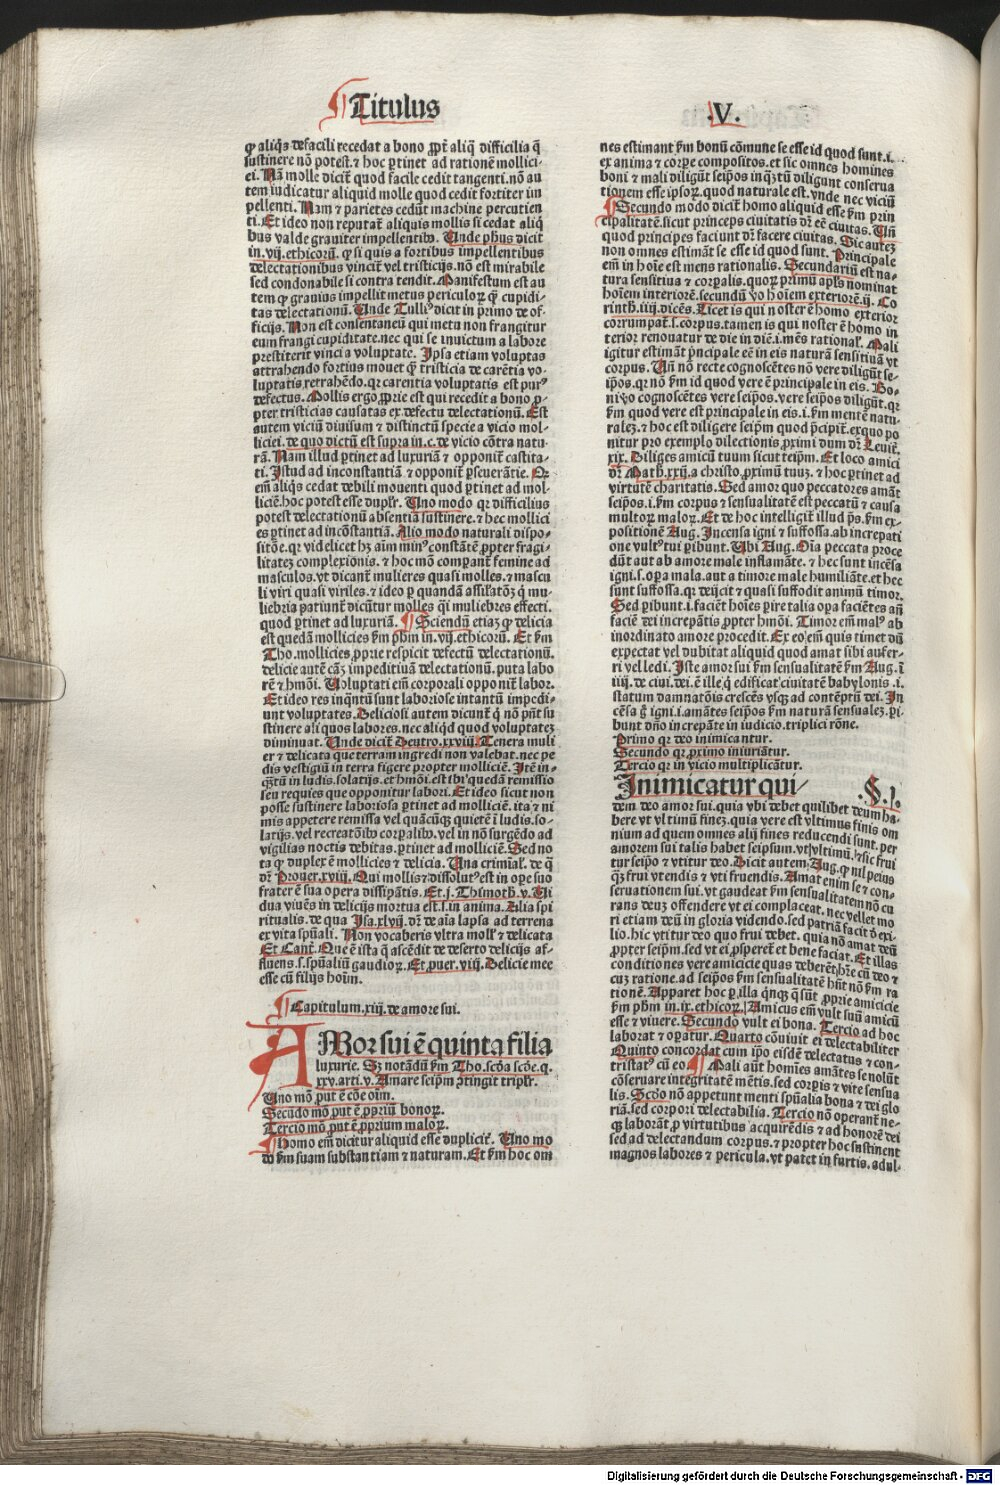 Titulus
.V.
ꝙ aliqͣs defacili recedat a bono ꝓpt̄ aliq̄ difficilia q̄
sustinere nō potest. ⁊ hoc ꝑtinet ad rationē mollici-
ei. Nā molle dicit̄ quod facile cedit tangenti. nō au
tem iudicatur aliquid molle quod cedit fortiter im
pellenti. Nam ⁊ parietes cedūt machine percutien
ti. Et ideo non reputat̄ aliquis mollis si cedat aliq̄
bus valde grauiter impellentibꝰ. Unde ph̄us dicit
in. vij. ethicorū. ꝙ si quis a fortibus impellentibus
delectationibus vincit̄ vel tristicijs. nō est mirabile
sed condonabile si contra tendit. Manifestum est au
tem ꝙ grauius impellit metus periculoꝝ ꝙ̄ cupidi-
tas delectationū. Unde Tulliꝰ dicit in primo de of-
ficijs. Non est consentaneū qui metu non frangitur
eum frangi cupiditate. nec qui se inuictum a labore
prestiterit vinci a voluptate. Ipsa etiam voluptas
attrahendo fortius mouet ꝙ̄ tristicia de carētia vo-
luptatis retrahēdo. qꝛ carentia voluptatis est purꝰ
defectus. Mollis ergo ꝓprie est qui recedit a bono ꝓ-
pter tristicias causatas ex defectu delectationū. Est
autem viciū diuisum ⁊ distinctū specie a vicio mol-
liciei. de quo dictū est supra in. c. de vicio cōtra natu-
rā. Nam illud ꝑtinet ad luxuriā ⁊ opponit̄ castita-
ti. Istud ad inconstantiā ⁊ opponit̄ ꝑseuerātie. Qꝛ
em̄ aliqͣs cedat debili mouenti quod ꝑtinet ad mol-
liciē. hoc potest esse duplr̄. Uno modo qꝛ difficilius
potest delectationū absentiā sustinere. ⁊ hec mollici
es ꝑtinet ad incōstantiā. Alio modo naturali dispo-
sitōe. qꝛ videlicet hꝫ aīm minꝰ constātē ꝓpter fragi-
litatez complexionis. ⁊ hoc mō compant̄ femine ad
masculos. vt dicant̄ mulieres quasi molles. ⁊ mascu
li viri quasi viriles. ⁊ ideo ꝑ quandā assil̄atōꝫ q̄ mu-
liebria patiunt̄ dicūtur molles qͣi muliebres effecti.
quod ꝑtinet ad luxuriā. Sciendū etiaꝫ ꝙ delicia
est quedā mollicies ẜm ph̄m in. vij. ethicorū. Et ẜm
Tho. mollicies ꝓprie respicit defectū delectationū.
delicie autē cāꝫ impeditiuā delectationū. puta labo
rē ⁊ hmōi. Uoluptati em̄ corporali opponit̄ labor.
Et ideo res inqͣntū sunt laboriose intantū impedi-
unt voluptates. Deliciosi autem dicunt̄ q̄ nō pn̄t su
stinere aliquos labores. nec aliqͥd quod voluptatez
diminuat. Unde dicit̄ Deutro. xxviij. Tenera muli
er ⁊ delicata que terram ingredi non valebat. nec pe
dis vestigiū in terra figere propter molliciē. Itē in-
qͣꝫtū in ludis. solatijs. et hmōi. est ibi quedā remissio
seu requies que opponitur labori. Et ideo sicut non
posse sustinere laboriosa ꝑtinet ad molliciē. ita ⁊ ni
mis appetere remissa vel quācūqꝫ quietē ī ludis. so-
latijs. vel recreatōibꝰ corꝑalibꝰ. vel in nō surgēdo ad
vigilias noctis debitas. ꝑtinet ad molliciē. Sed no
ta ꝙ duplex ē mollicies ⁊ delicia. Una crimīal̄. de q̄
dr̄ Prouer. xviij. Qui mollis ⁊ dissolutꝰ est in oꝑe suo
frater ē sua opera dissipātis. Et. j. Thimoth. v. Ui
dua viuēs in delicijs mortua est. s. in anima. Alia spi
ritualis. de qua Isa. xlvij. dr̄ de aīa lapsa ad terrena
ex vita spūali. Non vocaberis vltra moll̄ ⁊ delicata
Et Cant̄. Que ē ista q̄ ascēdit de deserto delicijs af-
fluens. s. spūaliū gaudioꝝ. Et ꝓuer. viij. Delicie mee
esse cū filijs hoīm.
Capitulum. xiij. de amore sui.
AMor sui ē quinta filia
luxurie. Sꝫ notādū ẜm Tho. scd̄a scd̄e. q.
xxv. arti. v. Amare seip̄m ꝯtingit triplr̄.
Uno mō ꝓut ē cōe oīm.
Secūdo mō ꝓut ē ꝓpriū bonoꝝ.
Tercio mō ꝓut ē ꝓprium maloꝝ.
Homo em̄ dicitur aliquid esse dupliciꝉ. Uno mo
do ẜm suam substantiam ⁊ naturam. Et ẜm hoc om
nes estimant ẜm bonū cōmune se esse id quod sunt. i.
ex anima ⁊ corꝑe compositos. et sic omnes homines
boni ⁊ mali diligūt seipos inqͣꝫtū diligunt conserua
tionem esse ipsoꝝ. quod naturale est. vnde nec viciū
Secundo modo dicit̄ homo aliquid esse ẜm prin
cipalitatē. sicut princeps ciuitatis dr̄ eē ciuitas. Uñ
quod principes faciunt dr̄ facere ciuitas. Sic autez
non omnes estimāt se esse id quod sunt. Principale
em̄ in hoīe est mens rationalis. Secundariū est na-
tura sensitiua ⁊ corꝑalis. quoꝝ primū apl̄s nominat
hoīem interiorē. secundū vo hoīem exteriorē. ij. Co
rinth. iiij. dicēs. Licet is qui noster ē homo exterior
corrumpat̄. s. corpus. tamen is qui noster ē homo in
terior renouatur de die in diē. i. mēs rational̄. Mali
igitur estimāt pͥncipale eē in eis naturā sensitiuā vt
corpus. Uñ nō recte cognoscētes nō vere diligūt se-
ip̄os. qꝛ nō ẜm id quod vere ē principale in eis. Bo-
ni vo cognoscētes vere seip̄os. vere seip̄os diligūt. qꝛ
ẜm quod vere est principale in eis. i. ẜm mentē natu-
ralez. ⁊ hoc est diligere seip̄m quod p̄cipit̄. ex quo po
nitur pro exemplo dilectionis ꝓximi dum dr̄ Leuit̄.
xix. Diliges amicū tuum sicut teip̄m. Et loco amici
dr̄ Math. xxij. a christo ꝓximū tuuꝫ. ⁊ hoc ꝑtinet ad
virtutē charitatis. Sed amor quo peccatores amāt
seip̄os. i. ẜm corpus ⁊ sensualitatē est peccatū ⁊ causa
multoꝝ maloꝝ. Et de hoc intelligit̄ illud ps̄. ẜm ex-
positionē Aug. Incensa igni ⁊ suffossa. ab increpati
one vultꝰ tui ꝑibunt. Ubi Aug. Oīa peccata proce
dūt aut ab amore male inflamāte. ⁊ hec sunt incēsa
igni. s. oꝑa mala. aut a timore male humiliāte. et hec
sunt suffossa. qꝛ deijcit ⁊ quasi suffodit animū timor.
Sed ꝑibunt. i. faciēt hoīes ꝑire talia oꝑa faciētes añ
faciē dei increpātis ꝓpter hmōi. Timor em̄ malꝰ ab
inordinato amore procedit. Ex eo em̄ quis timet dū
expectat vel dubitat aliquid quod amat sibi aufer-
ri vel ledi. Iste amor sui ẜm sensualitatē ẜm Aug. ī
iiij. de ciui. dei. ē ille q̄ edificat ciuitatē babylonis. i.
statum damnatōis crescēs vsqꝫ ad contēptū dei. In
cēsa g̊ igni. i. amātes seip̄os ẜm naturā sensualeꝫ. ꝑi-
bunt dn̄o increpāte in iudicio. triplici rōne.
Primo qꝛ deo inimicantur.
Secundo qꝛ ꝓximo iniuriātur.
Tercio qꝛ in vicio multiplicātur.
Inimicatur qui .§. I.
dem deo amor sui. quia vbi debet quilibet deum ha-
bere vt vltimū finez. quia vere est vltimus finis om
nium ad quem omnes alij fines reducendi sunt. per
amorem sui talis habet seipsum. vt vltimū. ⁊ sic frui
tur seip̄o ⁊ vtitur deo. Dicit autem Aug. ꝙ nil peius
qͣꝫ frui vtendis ⁊ vti fruendis. Amat enim se ⁊ con-
seruationem sui. vt gaudeat ẜm sensualitatem nō cu
rans deuꝫ offendere vt ei complaceat. nec vellet mo
ri etiam deū in gloria videndo. sed patriā facit d̄ exi-
lio. hic vtitur deo quo frui debet. quia nō amat deū
ꝓpter seip̄m. sed vt ei ꝓsperet̄ et bene faciat. Et illas
conditiones vere amicicie quas deberēt hr̄e cū deo ⁊
cuꝫ ratione. ad seip̄os ẜm sensualitatē hn̄t nō ẜm ra
tionē. Apparet hoc ꝑ illa qͥnqꝫ q̄ sūt ꝓprie amicicie
ẜm ph̄m in. ix. ethicoꝝ. Amicus em̄ vult suū amicū
esse ⁊ viuere. Secundo vult ei bona. Tercio ad hoc
laborat ⁊ oꝑatur. Quarto cōuiuit ei delectabiliter
Quinto concordat cum ip̄o eisdē delectatus ⁊ con-
tristatꝰ cū eo. Mali aūt homīes amātes se nolūt
cōseruare integritatē mētis. sed corꝑis ⁊ vite sensua
lis. Scd̄o nō appetunt menti spūalia bona ⁊ dei glo
riā. sed corpori delectabilia. Tercio nō operant̄ ne-
qꝫ laborāt ꝓ virtutibus acquirēdis ⁊ ad honorē dei
sed ad delectandum corpus. ⁊ propter hoc sustinent
magnos labores ⁊ pericula. vt patet in furtis. adul-
Digitalisierung gefördert durch die Deutsche Forschungsgemeinschaft - DFG